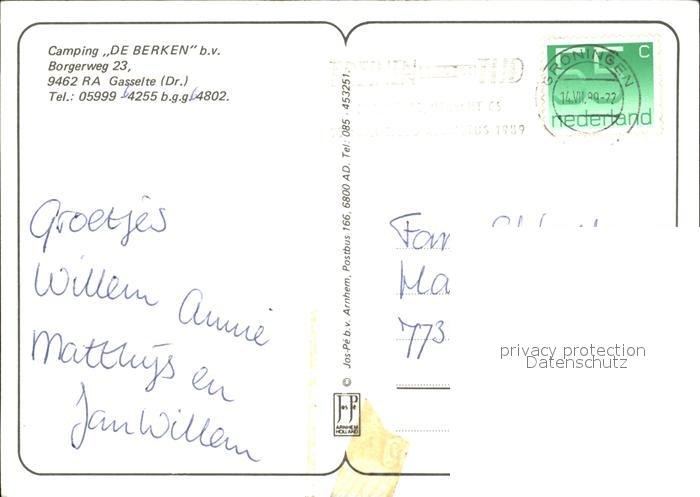 Camping „DE BERKEN" b.v.
Borgerweg 23,
9462 RA Gasselte (Dr.)
Tel.: 05999 - 4255 b.g.g. 4802.
55 C
nederland
GRONINGEN
14.VII.89-22
TREINEN TIJD
CS
AUGUSTUS 1989
Groetjes
Willem Annie
Matthijs en
Jan Willem
© Jos-Pé b.v. Arnhem, Postbus 166, 6800 AD. Tel: 085 - 453251.
Jos Pé
ARNHEM
HOLLAND
Fam
Ma
773
privacy protection
Datenschutz